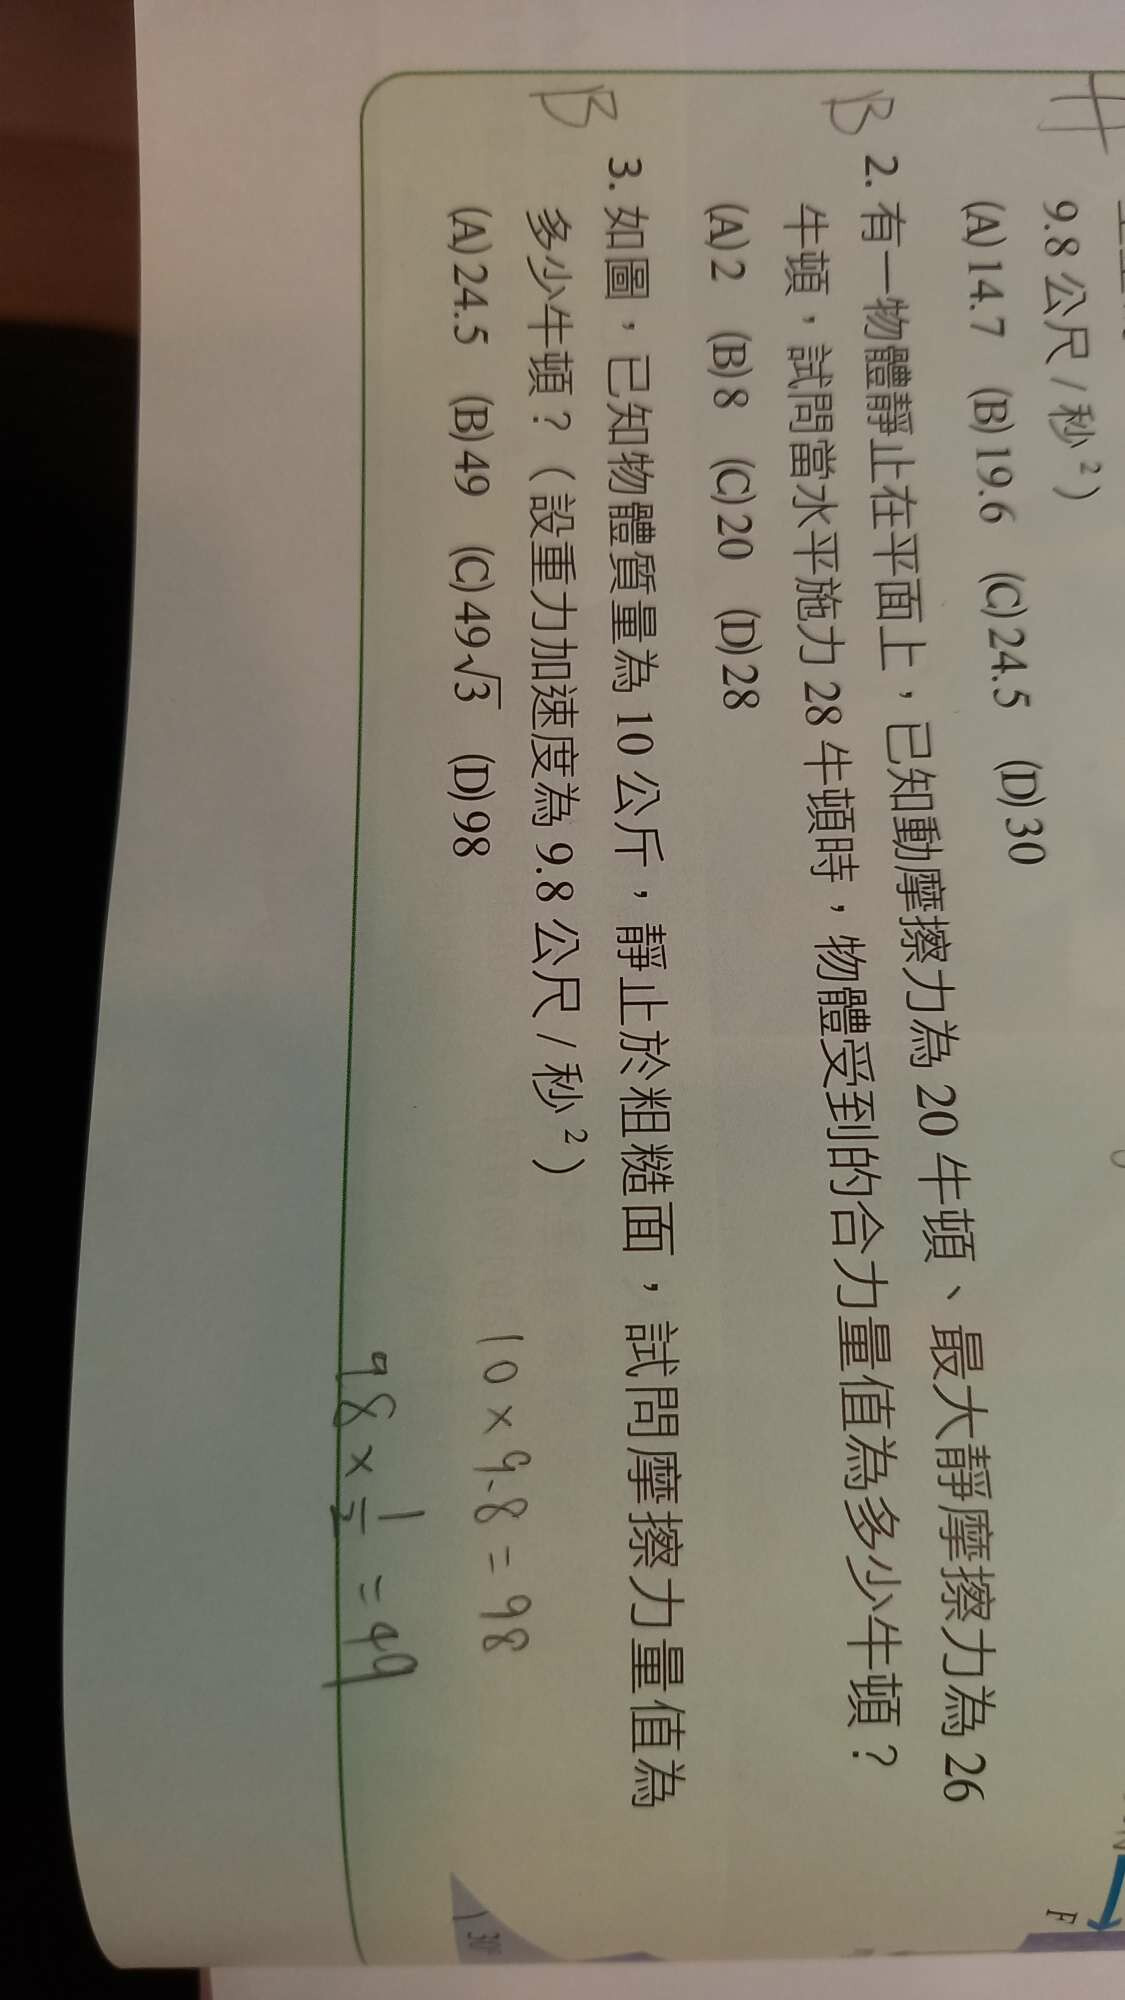 9.8 公尺 / 秒²）
(A)14.7 (B)19.6 (C)24.5 (D)30
B 2. 有一物體靜止在平面上，已知動摩擦力為 20 牛頓、最大靜摩擦力為 26
牛頓，試問當水平施力 28 牛頓時，物體受到的合力量值為多少牛頓？
(A)2 (B)8 (C)20 (D)28
B 3. 如圖，已知物體質量為 10 公斤，靜止於粗糙面，試問摩擦力量值為
多少牛頓？（設重力加速度為 9.8 公尺 / 秒²）
(A)24.5 (B)49 (C)49√3 (D)98
10 × 9.8 = 98
98 × 1/2 = 49
F
30°